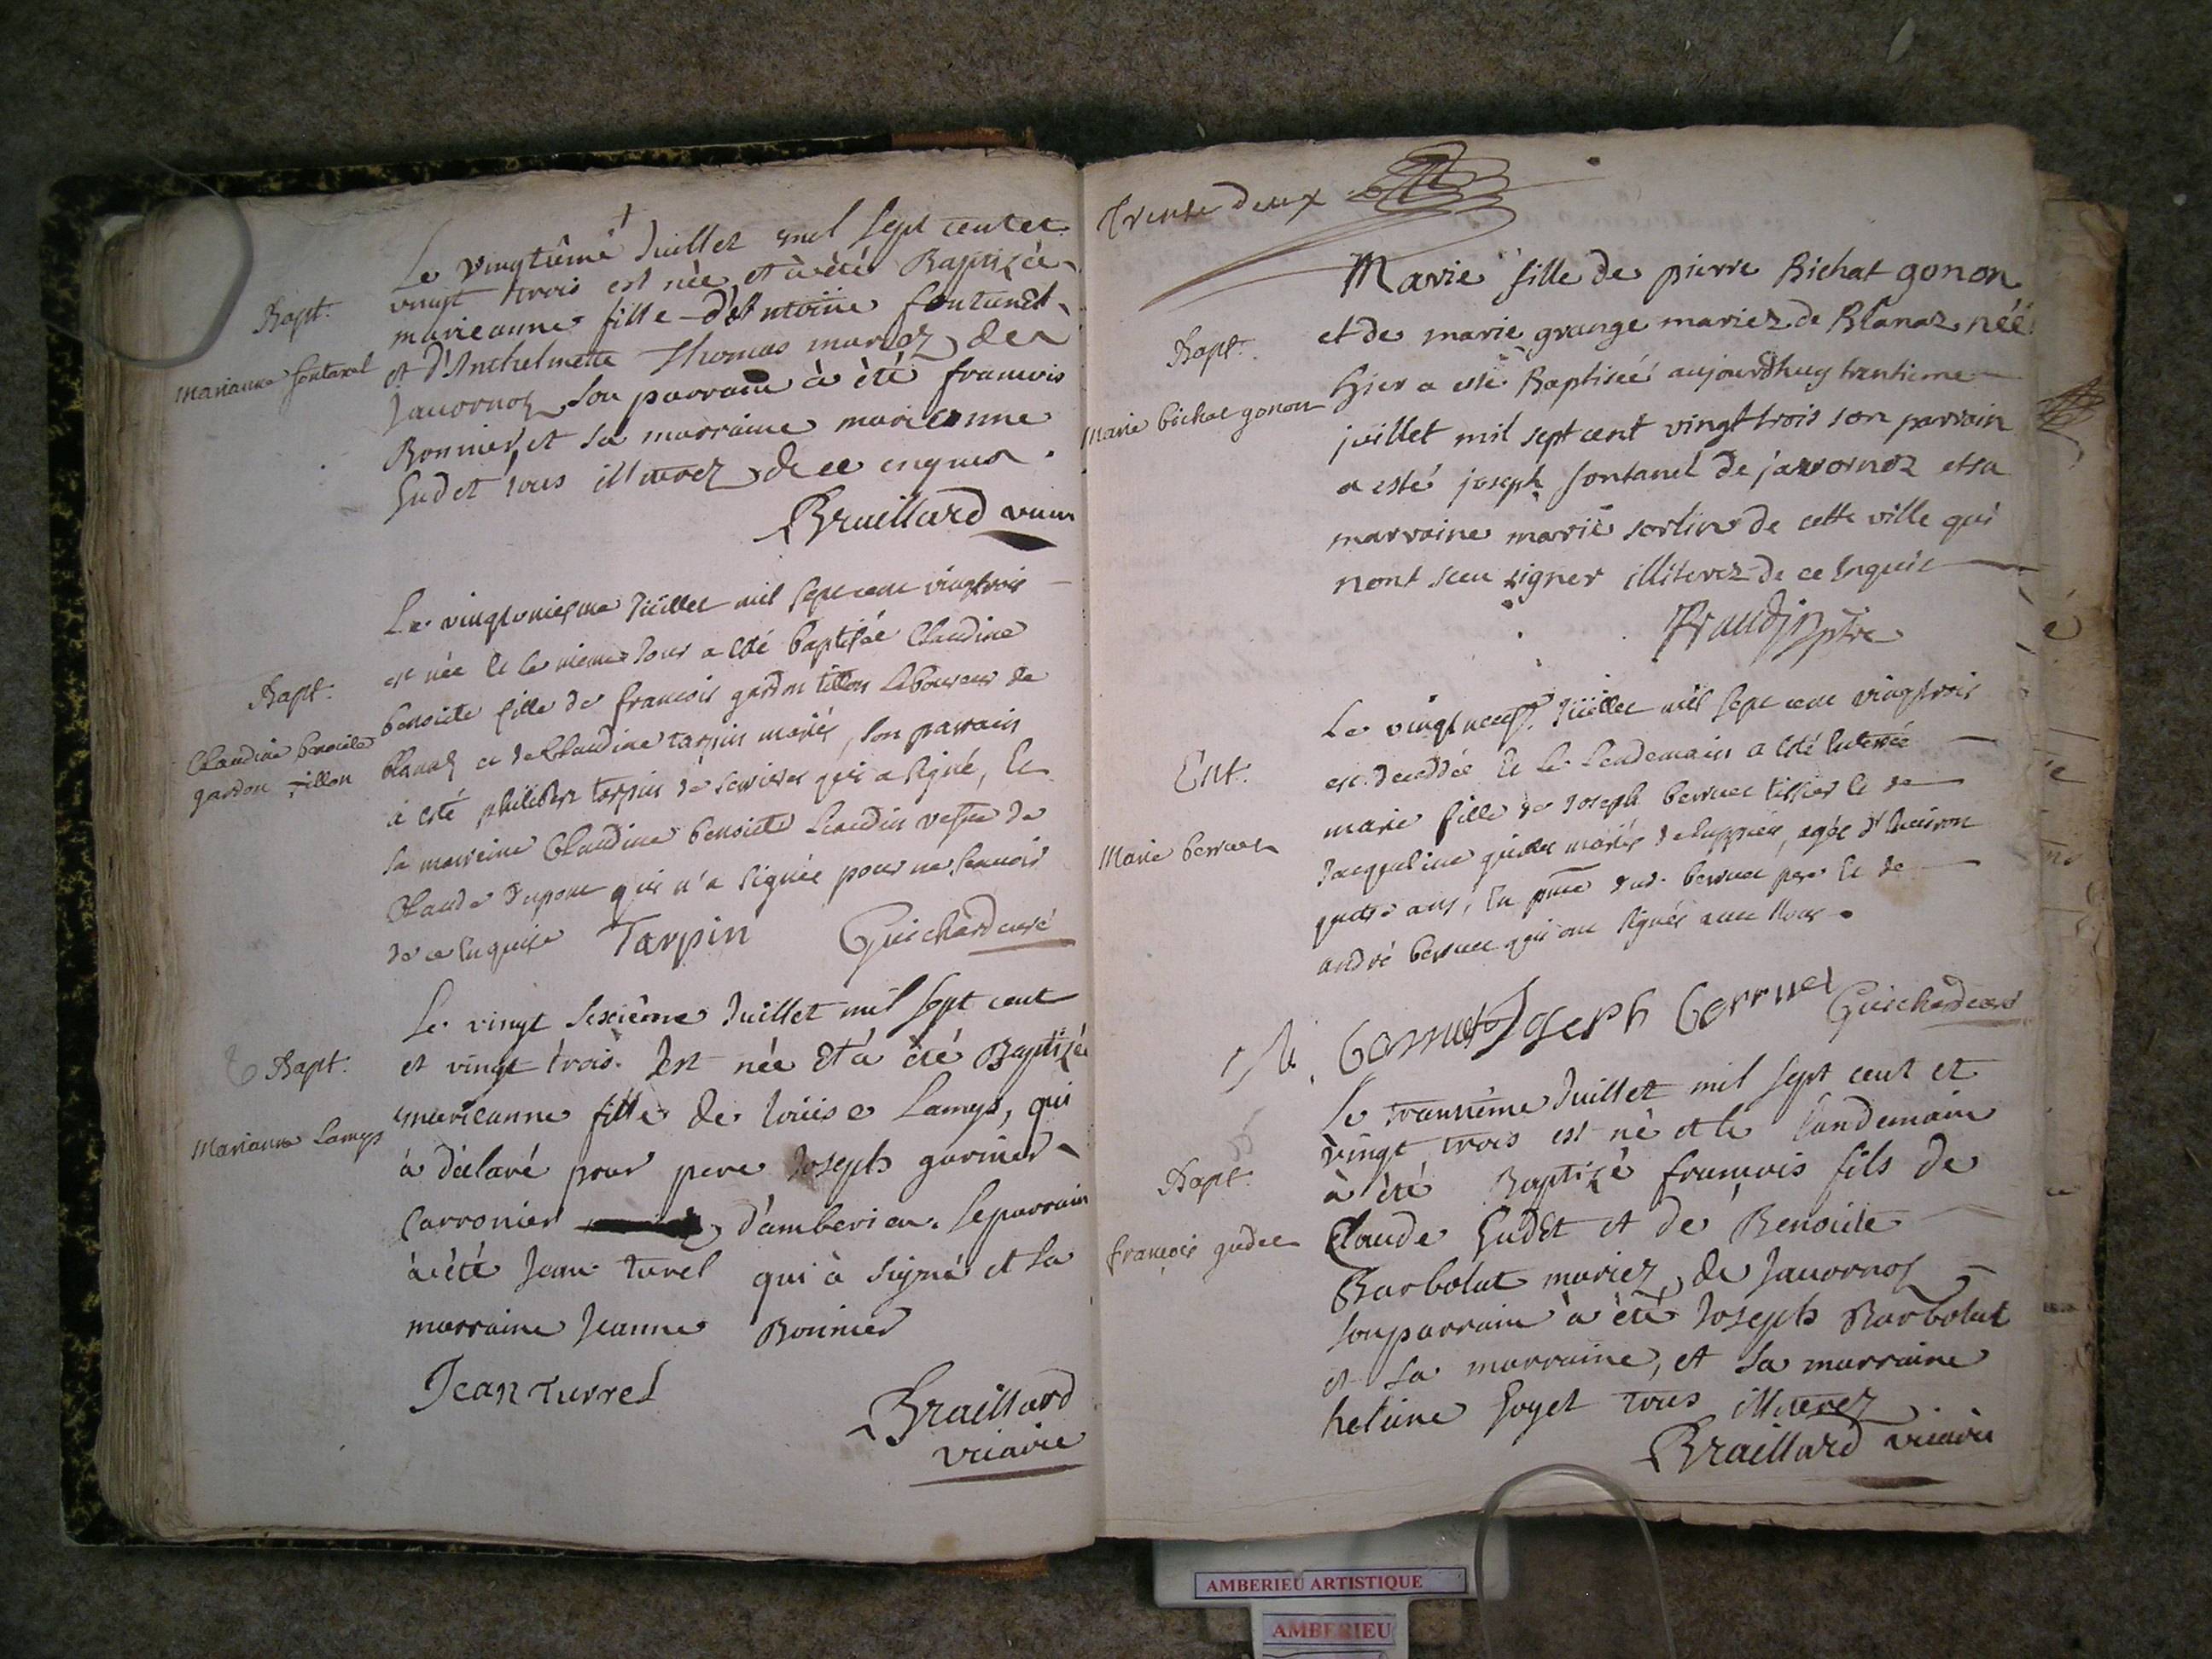 Le vingtiême Juillet mil sept cent et
vingt trois est née et à été Baptizée
Bapt.
marieanne fille d'Antoine fontanel
Marianne fontanel
et d'Anthelmette Thomas mariez de
Jauornoz son parrain à été francois
Bonnier et sa marraine marieanne
Gudet tous illiterez de ce enquis.
Braillard vicaire
Le vingt uniesme Juillet mil sept cent vingt trois
est née et le meme Jour a esté baptisée Claudine
Bapt.
benoite fille de francois gardon tillon Laboureur de
Claudine benoite
gardon tillon
blanaz et de Claudine tarpin mariés, son parrain
a esté philibert tarpin de seruieres qui a signé, et
sa marreine Claudine benoite de
Claude dupont qui n'a signée pour ne scauoir
de ce Enquise Tarpin Guichard curé
Le vingt sixiême Juillet mil sept cent
et vingt trois. Est née Et à été Baptizée
Bapt.
marieanne fille de loüise Lamys, qui
Marianne Lamys
à déclaré pour pere Joseph garnier
Carronier d'amberieu. Le parrain
à été Jean turel qui à signé et la
marraine Jeanne Bonnier
Jean Turrel
Braillard
vicaire
Trente deux
Marie fille de pierre Bichat gonon
et de marie grange mariez de Blanaz née
Bapt.
hier a esté Baptiseé aujourdhuy trentieme
Marie bichat gonon
juillet mil sept cent vingt trois son parrain
a esté joseph fontanel de javornoz et sa
marraine marie sorlin de cette ville qui
nont sceu signer illiterez de ce Enquis
Traudin ptre
Le vingt neuf Juillet mil sept cent vingt trois
est decedée et le Lendemain a esté Enterrée
Ent.
marie fille de Joseph berruet tissier et de
Marie berruet
Jacqueline mariés agée d'Enuiron
quatre ans, En pnce dud. berruet pere et de
andré berruet qui ont signés auec Nous.
Joseph berruet Guichard curé
Le trantième Juillet mil sept cent et
vingt trois est né et le landemain
Bapt.
à été Baptizé francois fils de
françois gudet
Claude Gudet et de Benoite
Barbolat mariez de Jauornoz
son parrain à été Joseph Barbolat
et sa marraine, et sa marraine
helaine Goyet tous illiterez
Braillard vicaire
AMBERIEU ARTISTIQUE
AMBERIEU